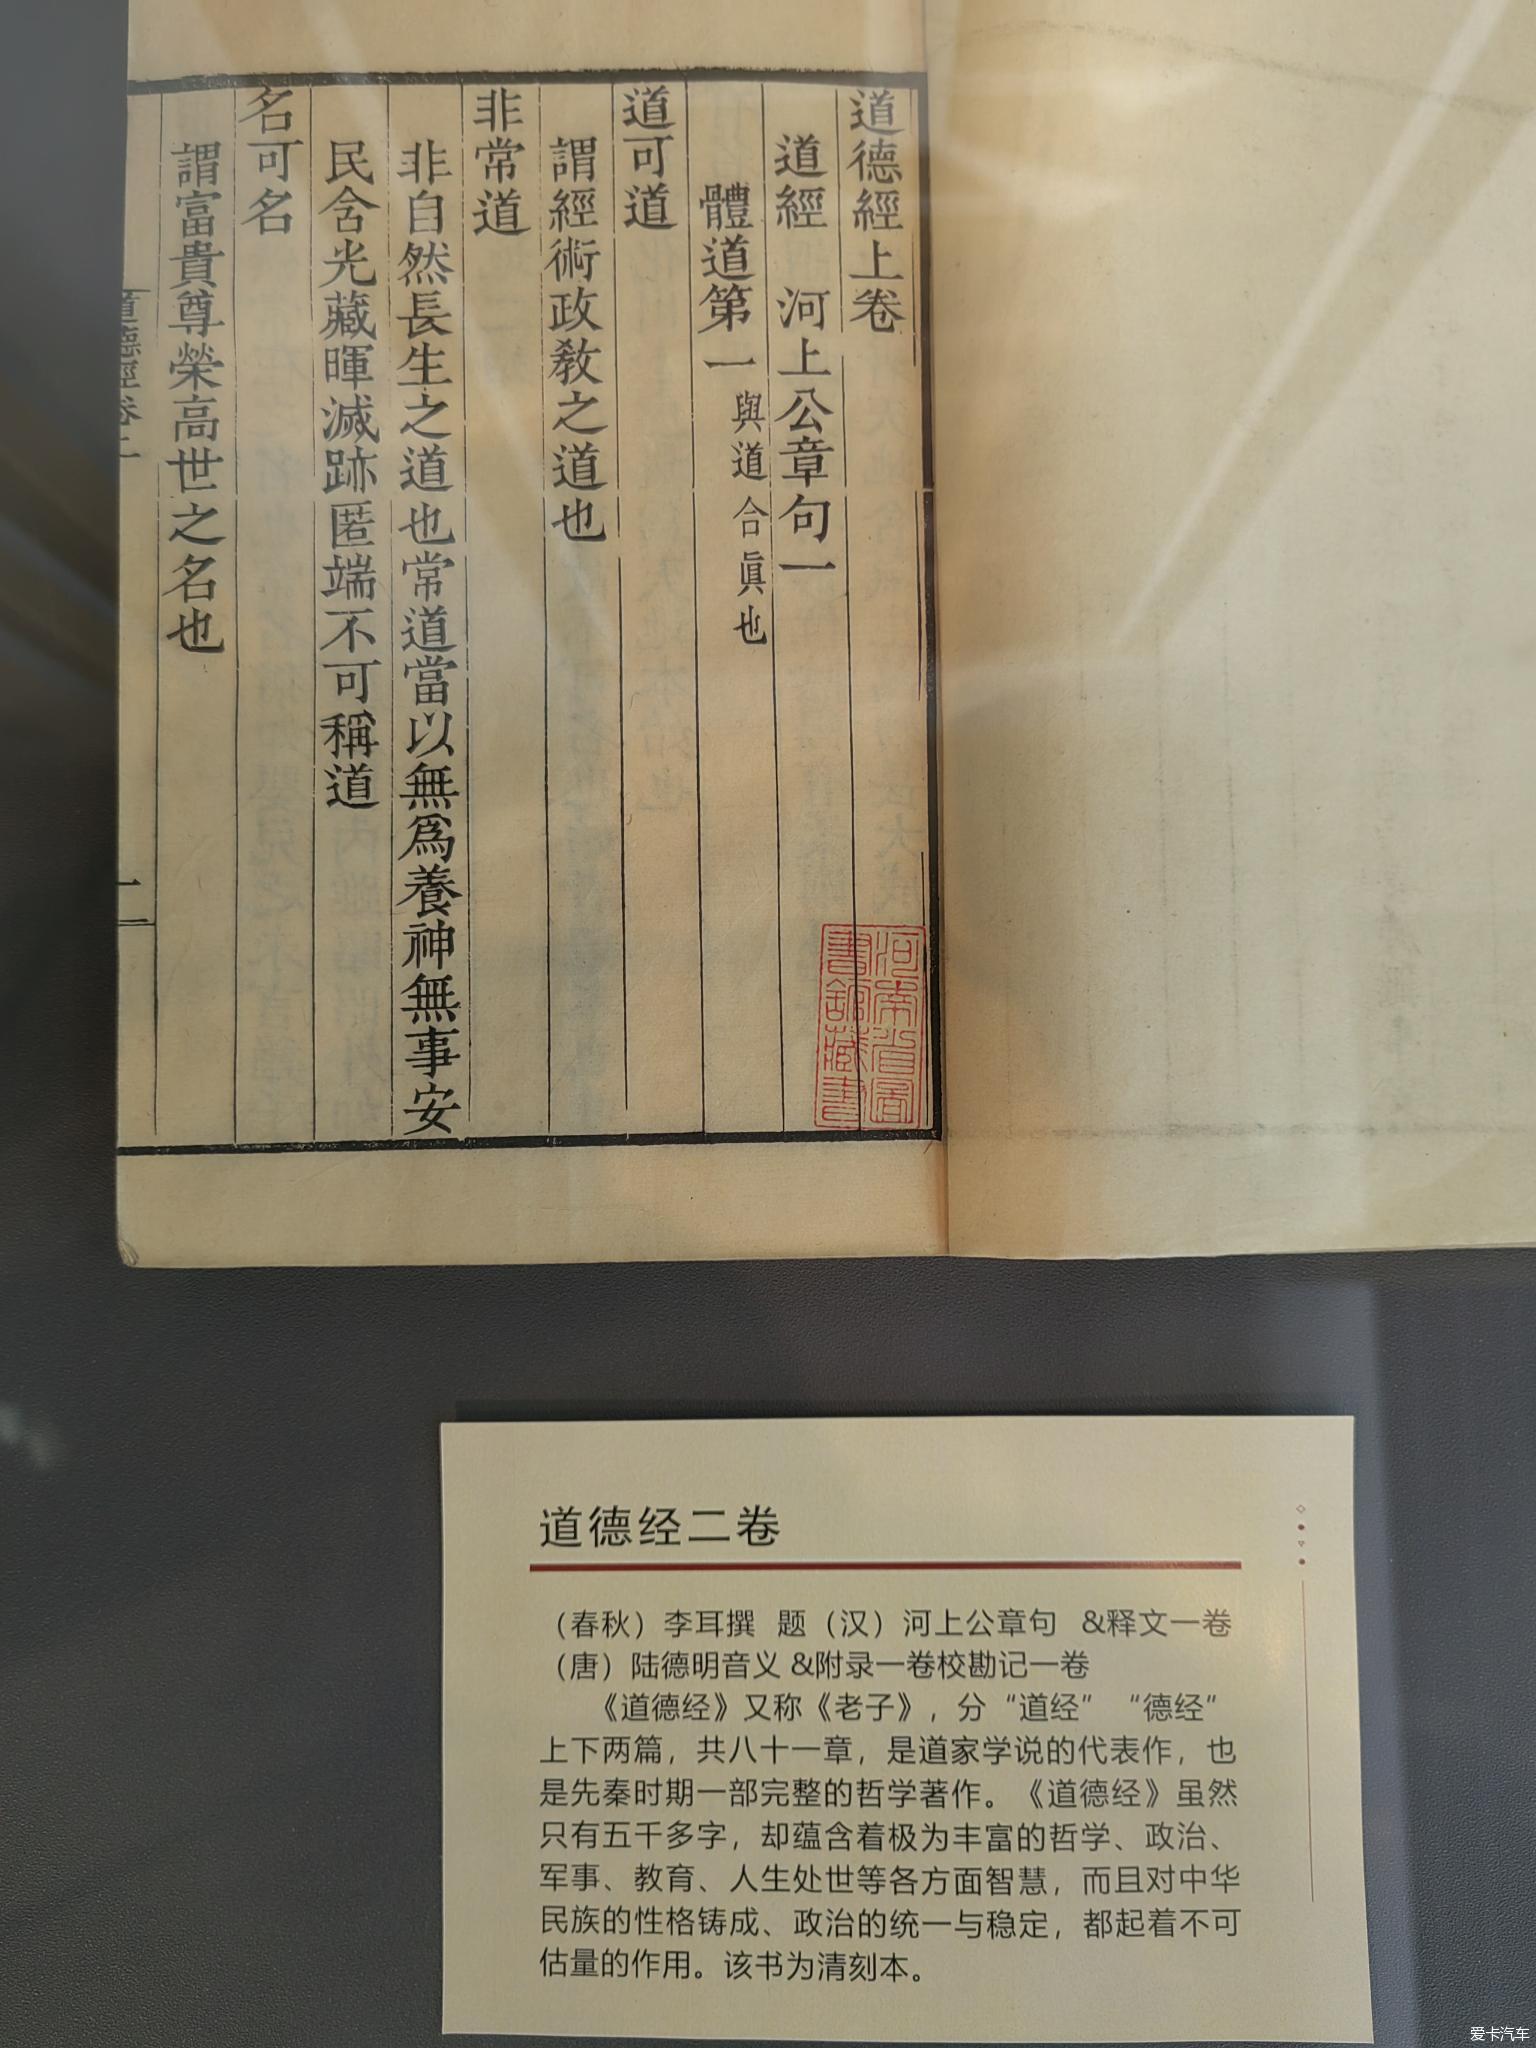 道德經上卷
道經 河上公章句一
體道第一 與道合眞也
道可道
謂經術政敎之道也
非常道
非自然長生之道也常道當以無爲養神無事安
民含光藏暉滅跡匿端不可稱道
名可名
謂富貴尊榮高世之名也
道德經卷上
一
河南省圖
書館藏書
道德经二卷
（春秋）李耳撰 题（汉）河上公章句 &释文一卷
（唐）陆德明音义 &附录一卷校勘记一卷
《道德经》又称《老子》，分“道经”“德经”
上下两篇，共八十一章，是道家学说的代表作，也
是先秦时期一部完整的哲学著作。《道德经》虽然
只有五千多字，却蕴含着极为丰富的哲学、政治、
军事、教育、人生处世等各方面智慧，而且对中华
民族的性格铸成、政治的统一与稳定，都起着不可
估量的作用。该书为清刻本。
爱卡汽车